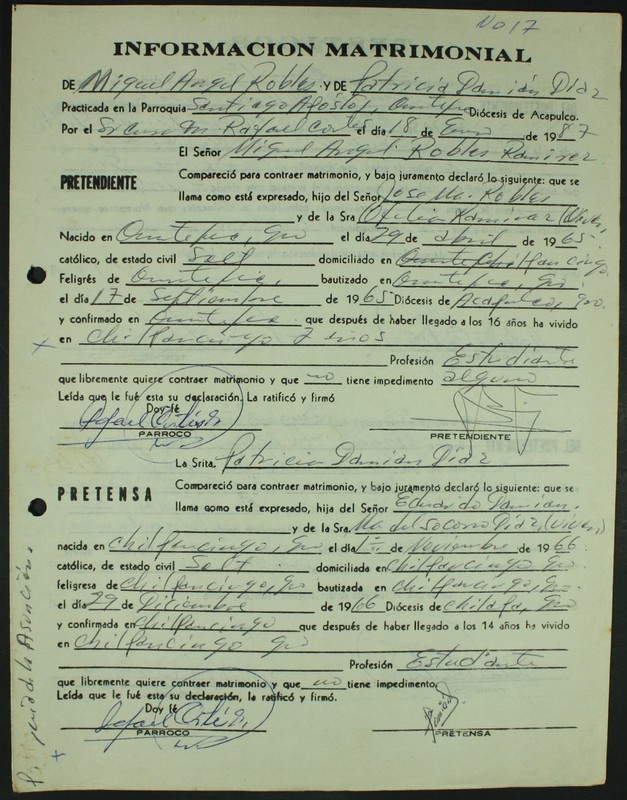 No 17
INFORMACION MATRIMONIAL
DE Miguel Angel Robles Y DE Patricia Damián Díaz
Practicada en la Parroquia Santiago Apóstol, Omitepec Diócesis de Acapulco.
Por el Sr. Cura M. Rafael Cortes el día 18 de Enero de 1987
El Señor Miguel Angel Robles Ramirez
PRETENDIENTE Compareció para contraer matrimonio, y bajo juramento declaró lo siguiente: que se
llama como está expresado, hijo del Señor Jose Ma. Robles
y de la Sra. Ofelia Ramirez (Viven)
Nacido en Ometepec, Gro el día 29 de abril de 1965
católico, de estado civil Solt domiciliado en Chilpancingo
Feligrés de Ometepec, bautizado en Ometepec, Gro.
el día 17 de Septiembre de 1965 Diócesis de Acapulco, Gro.
y confirmado en Ometepec que después de haber llegado a los 16 años ha vivido
en Chilpancingo 7 años
Profesión Estudiante
que libremente quiere contraer matrimonio y que no tiene impedimento alguno
Leída que le fué esta su declaración. La ratificó y firmó
Doy fé
Rafael Cortés
PARROCO
PRETENDIENTE
La Srita. Patricia Damián Díaz
PRETENSA Compareció para contraer matrimonio, y bajo juramento declaró lo siguiente: que se
llama como está expresado, hija del Señor Eduardo Damian.
y de la Sra. Ma. del Socorro Díaz, (viven)
nacida en Chilpancingo, Gro el día 1º de Noviembre de 1966
católica, de estado civil Solt. domiciliada en Chilpancingo Gro.
feligresa de Chilpancingo, Gro bautizada en Chilpancingo, Gro.
el día 29 de Diciembre de 1966 Diócesis de Chilapa, Gro
y confirmada en Chilpancingo que después de haber llegado a los 14 años ha vivido
en Chilpancingo Gro
Profesión Estudiante
que libremente quiere contraer matrimonio y que no tiene impedimento
Leída que le fué esta su declaración, la ratificó y firmó.
Doy fé
Rafael Cortés
PARROCO
PRETENSA
de la Asunción.